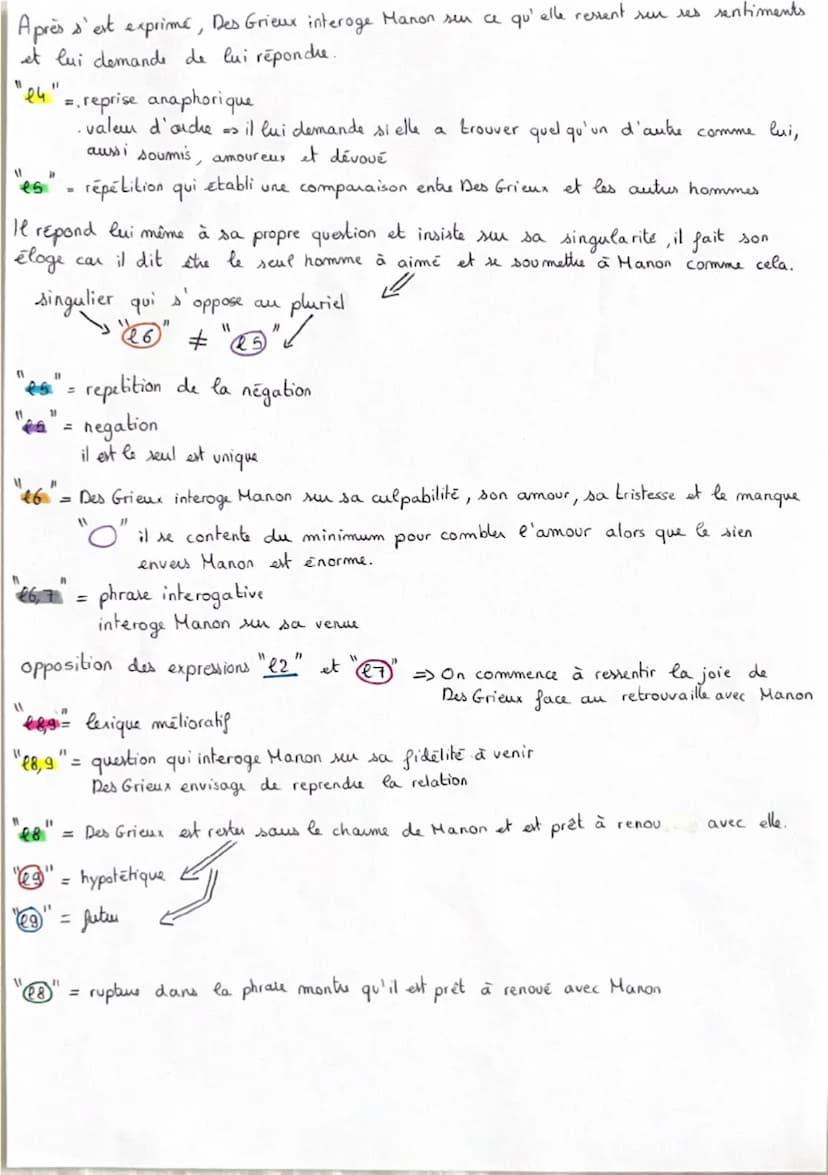 Après s'est exprimé, Des Grieux interoge Manon sur ce qu'elle ressent sur ses sentiments
et lui demande de lui répondre.
"l4" = . reprise anaphorique
. valeur d'ordre => il lui demande si elle a trouver quelqu'un d'autre comme lui,
aussi soumis, amoureux et dévoué
"l5" = répétition qui établi une comparaison entre Des Grieux et les autres hommes
Il répond lui même à sa propre question et insiste sur sa singularité, il fait son
éloge car il dit être le seul homme à aimé et se soumettre à Manon comme cela.
singulier qui s'oppose au pluriel
"l6" ≠ "l5"
"l5" = repetition de la négation
"l6" = negation
il est le seul est unique
"l6" = Des Grieux interoge Manon sur sa culpabilité, son amour, sa tristesse et le manque
" " il se contente du minimum pour combler l'amour alors que le sien
envers Manon est énorme.
"l6,7" = phrase interogative
interoge Manon sur sa venue
opposition des expressions "l2" et "l7" => On commence à ressentir la joie de
Des Grieux face au retrouvaille avec Manon
"l8,9" = lexique mélioratif
"l8,9" = question qui interoge Manon sur sa fidélité à venir
Des Grieux envisage de reprendre la relation
"l8" = Des Grieux est rester sous le charme de Manon et est prêt à renou avec elle.
"l9" = hypotétique
"l9" = futur
"l8" = rupture dans la phrase montre qu'il est prêt à renoué avec Manon